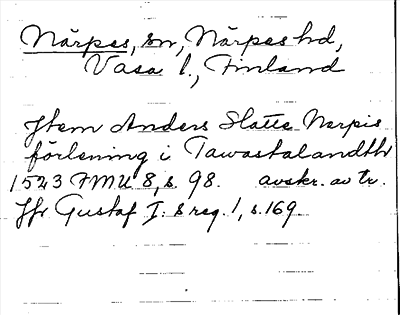 Närpes, sn, Närpes hd,
Vasa l., Finland
Item Anders Slatte Nerpis
förlening i Tawastalandh
1523 FMU 8, s. 98. avskr. av tr.
Jfr Gustaf I:s reg. 1, s. 169